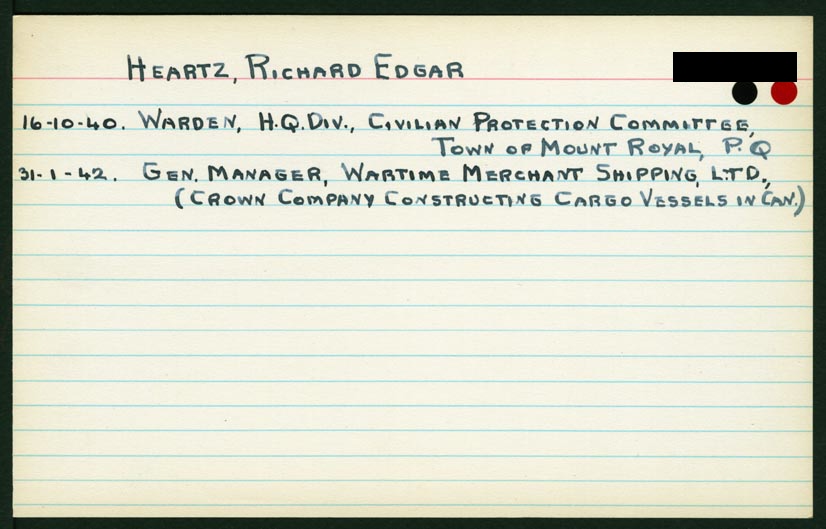 HEARTZ, RICHARD EDGAR
16-10-40. WARDEN, H.Q.DIV., CIVILIAN PROTECTION COMMITTEE,
TOWN OF MOUNT ROYAL, P.Q
31-1-42. GEN. MANAGER, WARTIME MERCHANT SHIPPING, LTD.,
(CROWN COMPANY CONSTRUCTING CARGO VESSELS IN CAN.)